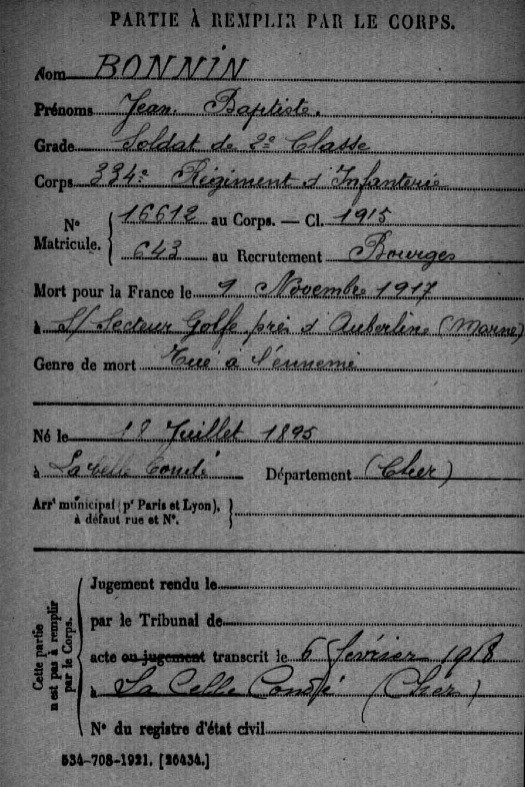 PARTIE À REMPLIR PAR LE CORPS.
Nom BONNIN
Prénoms Jean Baptiste.
Grade Soldat de 2e Classe
Corps 334e Régiment d'Infanterie
No Matricule. { 16612 au Corps. — Cl. 1915
643 au Recrutement Bourges
Mort pour la France le 9 Novembre 1917
à S/Secteur Golfe près d'Auberline (Marne)
Genre de mort Tué à l'ennemi
Né le 18 Juillet 1895
à La Celle Condé Département (Cher)
Arrt municipal (pr Paris et Lyon), }
à défaut rue et No.
Cette partie n'est pas à remplir par le Corps.
Jugement rendu le
par le Tribunal de
acte ou jugement transcrit le 6 février 1918
à La Celle Condé (Cher)
No du registre d'état civil
534-708-1921. [26434.]